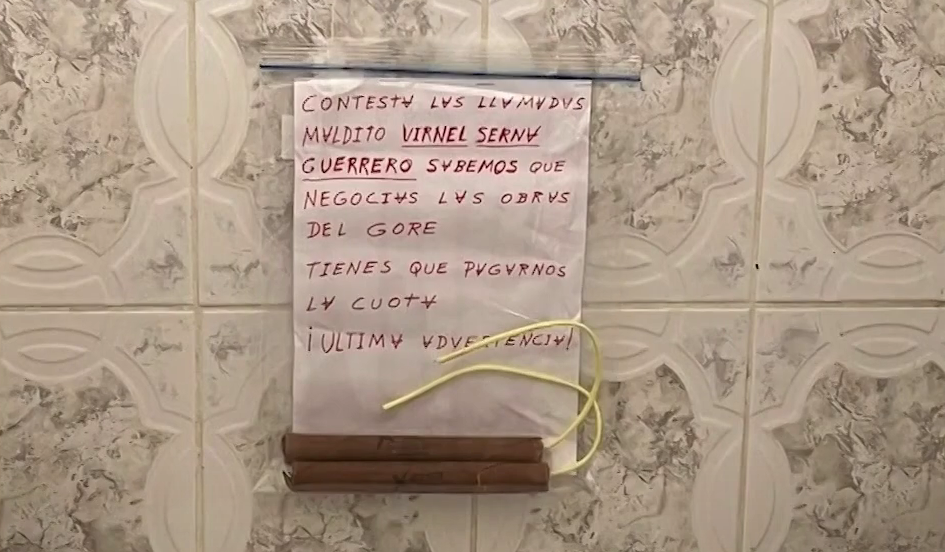 CONTESTA LAS LLAMADAS
MALDITO VIRNEL SERNA
GUERRERO SABEMOS QUE
NEGOCIAS LAS OBRAS
DEL GORE
TIENES QUE PAGARNOS
LA CUOTA
¡ULTIMA ADVERTENCIA!